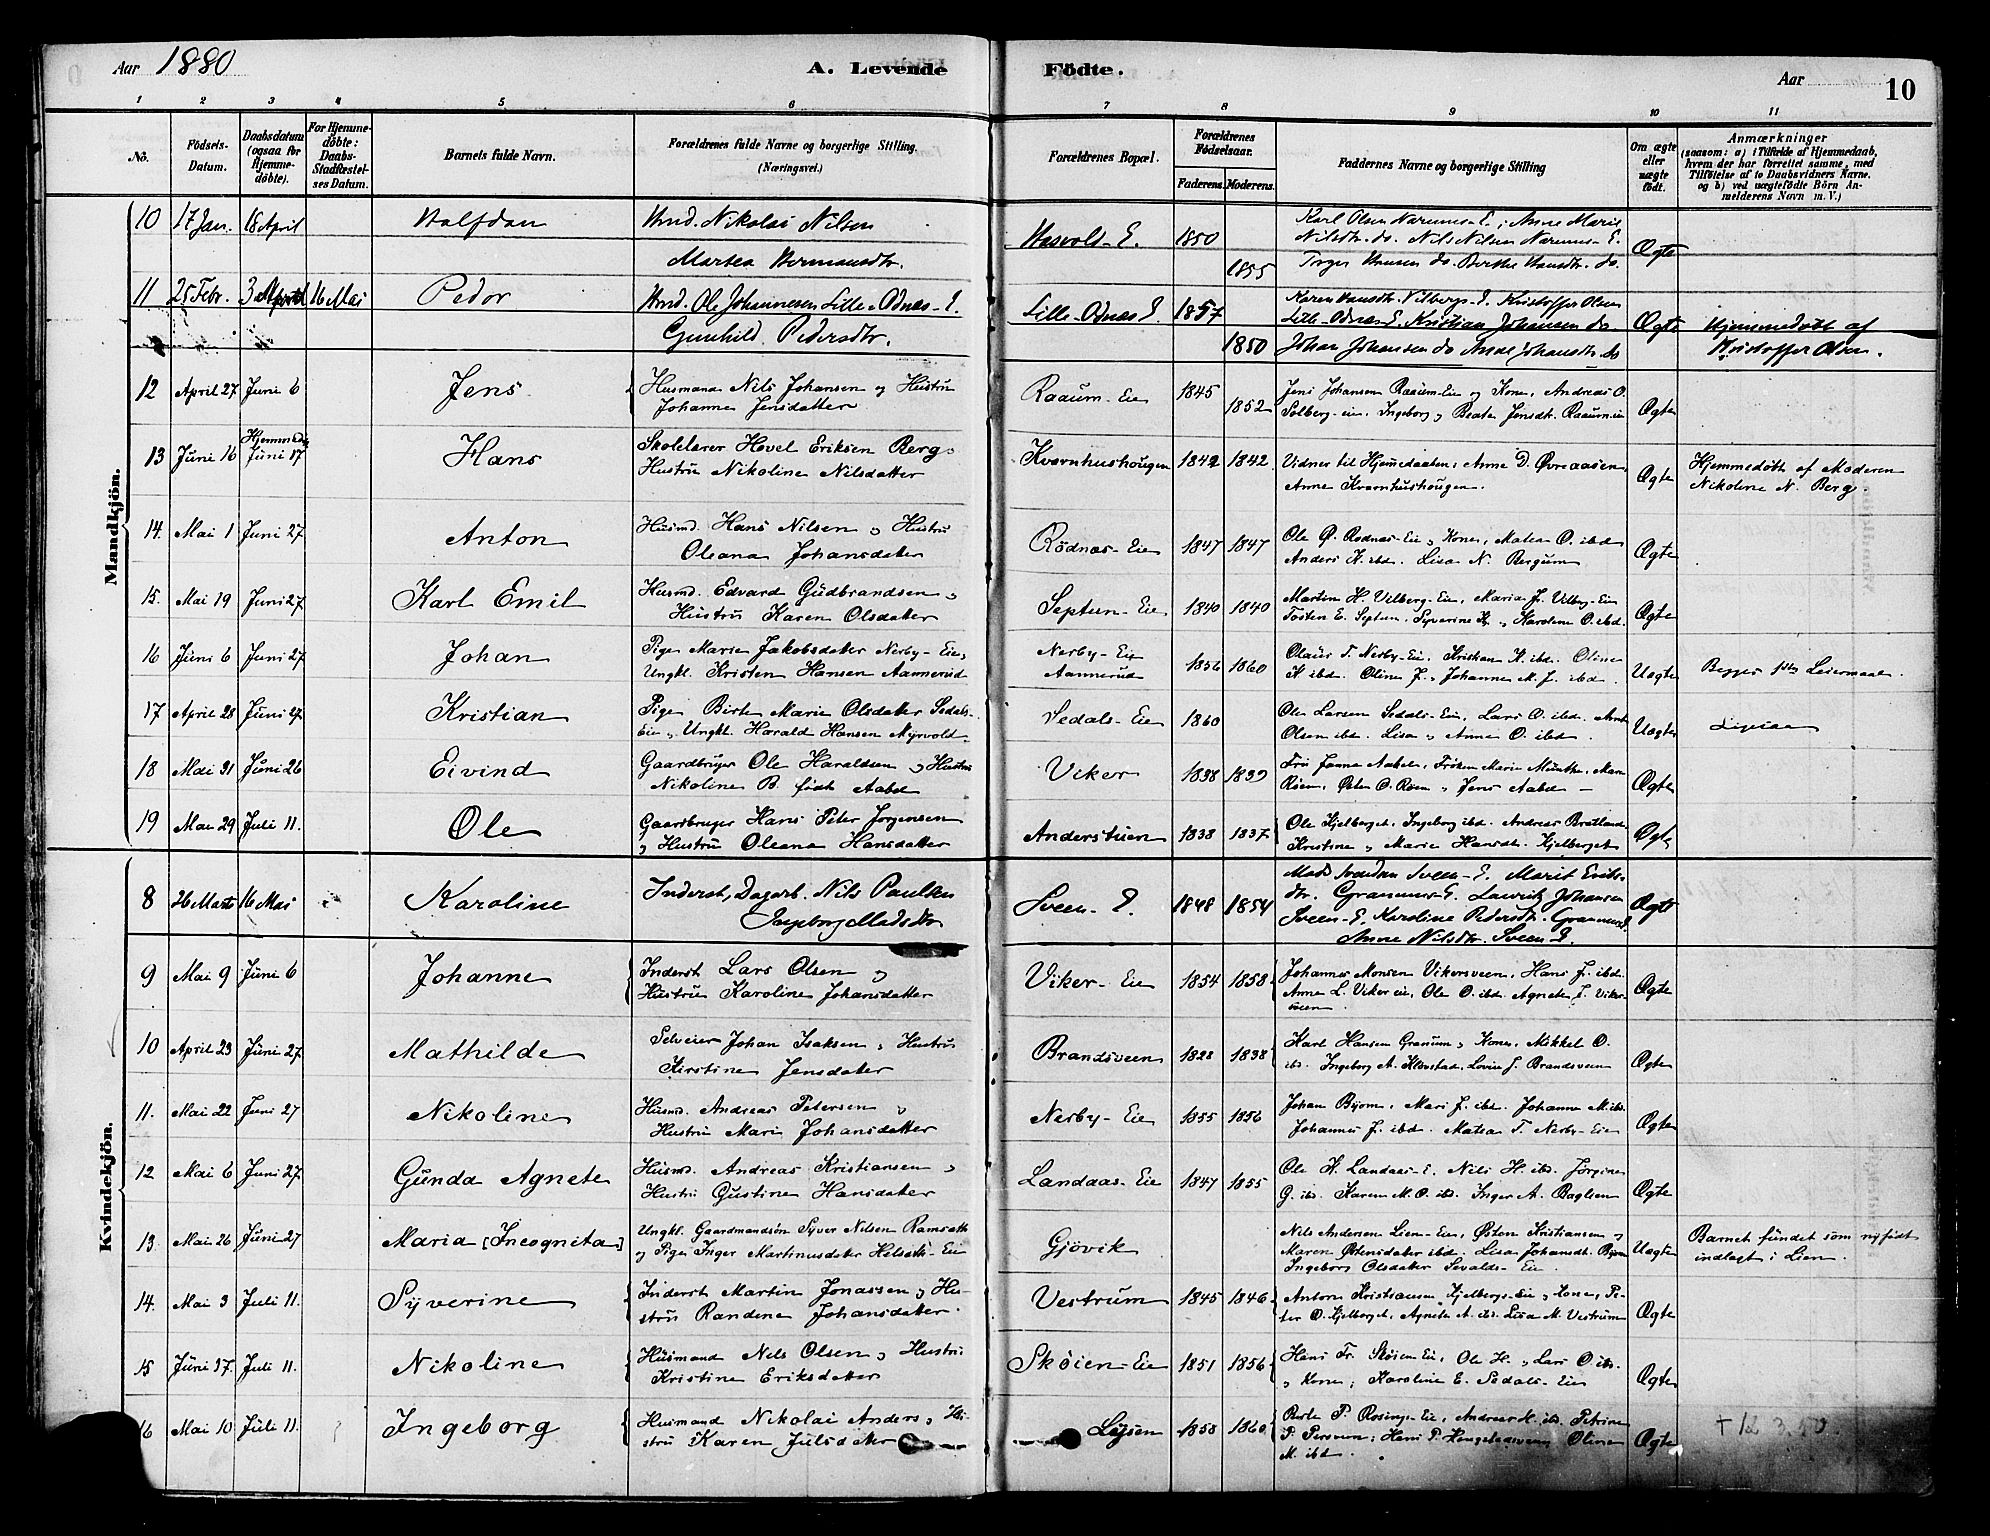 Aar 1880
A. Levende
Födte.
Aar
10
1 2 3 4 5 6 7 8 9 10 11
No.
Födsels-Datum.
Daabsdatum (ogsaa for Hjemme-döbte).
For Hjemme-döbte: Daabs-Stadfæstel-ses Datum.
Barnets fulde Navn.
Forældrenes fulde Navne og borgerlige Stilling. (Næringsvei.)
Forældrenes Bopæl.
Forældrenes Födselsaar.
Faderens. Moderens.
Faddernes Navne og borgerlige Stilling
Om ægte eller uægte födt.
Anmærkninger (saasom: a) i Tilfælde af Hjemmedaab, hvem der har forrettet samme, med Tilföielse af to Daabsvidners Navne. og b) ved uægtefödte Börn An-melderens Navn m. V.)
Mandkjön.
10 17 Jan. 18 April Halfdan Hmd. Nikolai Nilsen
Martea Hermansdtr.
Hasvold-E. 1850 1855
Karl Olsen E.; Anne Marie
Nilsdtr. do. Nils Nilsen E.
Hansen do. Berthe Hansdtr. do.
Ægte
11 25 Febr. 3 April 16 Mai Peder Hmd. Ole Johannesen Lille-Odnæs-E.
Gunhild Pedersdtr.
Lille-Odnæs E. 1857 1850
Karen Hansdtr. Vilbergs-E. Kristoffer Olsen
Lille-Odnæs E. Kristian Johansen do.
Johan Johansen do Anne Johansdtr. do
Ægte
Hjemmedöbt af
Kristoffer Olsen.
12 April 27 Juni 6 Jens Husmand Nils Johansen og Hustru
Johanne Jensdatter
Raaum-Eie 1845 1852
Jens Johansen Raaum-Eie og Kone, Andreas O.
Solberg-eie, Ingeborg og Beate Jensdt. Raaum-eie
Ægte
13 Juni 16 Hjemmed. Juni 17 Hans Skolelærer Hovel Eriksen Berg
Hustru Nikoline Nilsdatter
Kværnhushougen 1842 1842
Vidner til Hjemmedaaben, Anne D. Øvreaasen
Anne Kværnhushougen.
Ægte
Hjemmedöbt af Moderen
Nikoline N. Berg.
14. Mai 1 Juni 27 Anton Husmd. Hans Nilsen og Hustru
Oleana Johansdatter
Rödnæs-Eie 1847 1847
Ole Rodnæs-Eie og Kone, Matea O. ibd
Anders H. ibd. Lisa N. Bergum
Ægte
15. Mai 19 Juni 27 Karl Emil Husmd. Edvard Gudbrandsen og
Hustru Karen Olsdatter
Septun-Eie 1840 1840
Martin H. Vilberg-Eie, Maria J. Vilbg-Eie
Tosten E. Septun, Syverine og Karoline O. ibd.
Ægte
16 Juni 6 Juni 27 Johan Pige Marie Jakobsdatter Nerby-Eie og
Ungkl. Kristen Hansen Aannerud
Nerby-Eie
Aannerud
1856 1860
Olaus T. Nerby-Eie, Kristian H. ibd. Oline
H. ibd. Oline J. og Johanne M. J. ibd.
Uægte
Begges 1ste Leiermaal.
17 April 28 Juni 27 Kristian Pige Birte Marie Olsdatter Sedals-
Eie og Ungkl. Harald Hansen Myrvold
Sedals-Eie 1860
Ole Larsen Sedals-Eie, Lars O. ibd.
Olsen ibd. Lisa og Anne O. ibd.
Uægte
18 Mai 31 Juni 26 Eivind Gaardbruger Ole Haraldsen og Hustru
Nikoline B. födt Aabel
Viker 1838 1839
Fru Janna Aabel, Fröken Marie Munthe, Maren
Röen, Peter O. Röen og Jens Aabel
Ægte
19 Mai 29 Juli 11. Ole Gaardbruger Hans Peter Jörgensen
og Hustru Oleana Hansdatter
Anderstuen 1838 1837
Ole Kjelberget, Ingeborg ibd. Andreas Bratland
Kristine og Marie Hansdt. Kjelberget
Ægte
Kvindekjön.
8 26 Marts 16 Mai Karoline Inderst, Dagarb. Nils Paulsen
Ingeborg Madsdtr
Sveen-E. 1848 1854
Mads Svendsen Sveen-E. Marit Eriks-
dtr. Granums-E. Laurits Johansen
Sveen-E. Karoline Pedersdtr. Granums E.
Anne Nilsdtr. Sveen E.
Ægte
9 Mai 9 Juni 6 Johanne Inderst Lars Olsen og
Hustru Karoline Johansdatter
Viker-Eie 1854 1858
Johannes Monsen Vikersveen, Hans J. ibd.
Anne L. Viker eie, Ole O. ibd. Agnete J. Viker-
sveen.
Ægte
10 April 23 Juni 27 Mathilde Selveier Johan Isaksen og Hustru
Kirstine Jensdatter
Brandsveen 1828 1838
Karl Hansen Granum og Kone, Mikkel O.
ibd. Ingeborg A. Klevstad, Lovise J. Brandsveen
Ægte
11. Mai 22 Juni 27 Nikoline Husmd. Andreas Petersen og
Hustru Mari Johansdatter
Nerby-Eie 1855 1856
Johan Byom, Mari J. ibd. Johanne M. ibd.
Johannes J. ibd. Matea T. Nerby-Eie
Ægte
12 Mai 6 Juni 27 Gunda Agnete Husmd. Andreas Kristiansen og
Hustru Gustine Hansdatter
Landaas-Eie 1847 1855
Ole H. Landaas-E. Nils H. ibd. Jörgine
G. ibd. Karen M. O. ibd. Inger A. Baglien
Ægte
13. Mai 26 Juni 27 Maria [Incognita] Ungkl. Gaardmandsön Syver Nilsen Ramseth
og Pige Inger Martinusdatter Eie
Gjövik
Nils Andersen Lien-Eie, Østen Kristiansen og
Maren Østensdatter ibd. Lisa Johansdt. Byom
Ingeborg Olsdatter Sevalds-Eie.
Uægte
Barnet fundet som nyfödt
indlagt i Lien.
14. Mai 3 Juli 11. Syverine Inderst Martin Jonassen og Hu-
stru Randene Johansdatter.
Vestrum 1845 1846
Anton Kristiansen Kjelbergs-Eie og Kone, Pe-
ter O. Kjelberget, Agnete A. ibd. Lisa M. Vestrum
Ægte
15 Juni 17. Juli 11. Nikoline Husmand Nils Olsen og Hustru
Kristine Eriksdatter
Skøien-Eie 1851 1856
Hans Fr. Skøien Eie, Ole H. og Lars O. ibd.
og Kone; Karoline E. Sedals-Eie
Ægte
16 Mai 10 Juli 11. Ingeborg Husmand Nikolai Anders. og Hu-
stru Karen Julsdatter
Løisen 1858 1860
Berte P. Rosings-Eie, Andreas H. ibd. Petrine
P. Hans P. Oline
M. ibd.
Ægte
+ 12 3.50